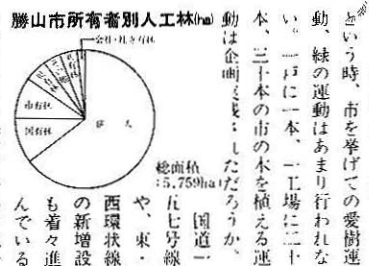 という時、市を挙げての愛樹運
動、緑の運動はあまり行われな
い。一戸に一本、一工場に二十
本、三十本の市の木を植える運
動は企画しただろうか、
国道一
五七号線
や、東・
西環状線
の新増設
も着々進
んでいる
勝山市所有者別人工林(ha)
会社・社寺有林
市有林
国有林
個人
総面積
:5,759ha